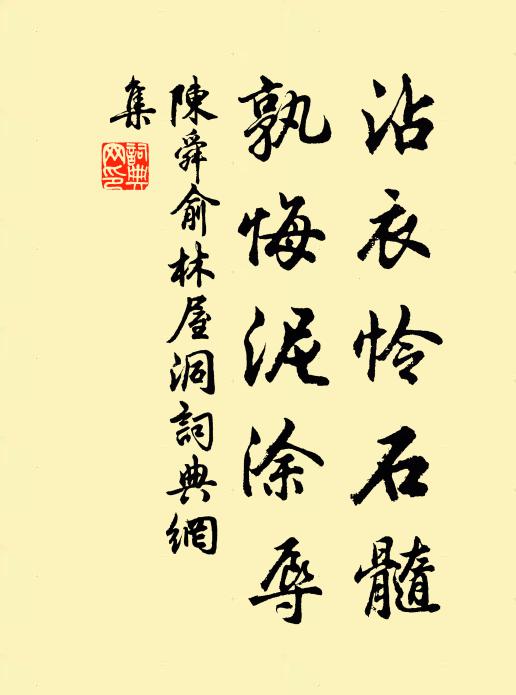 沾衣怜石髓
孰悔泥涂辱
陳舜俞林屋洞詞典網
集
詞典網印